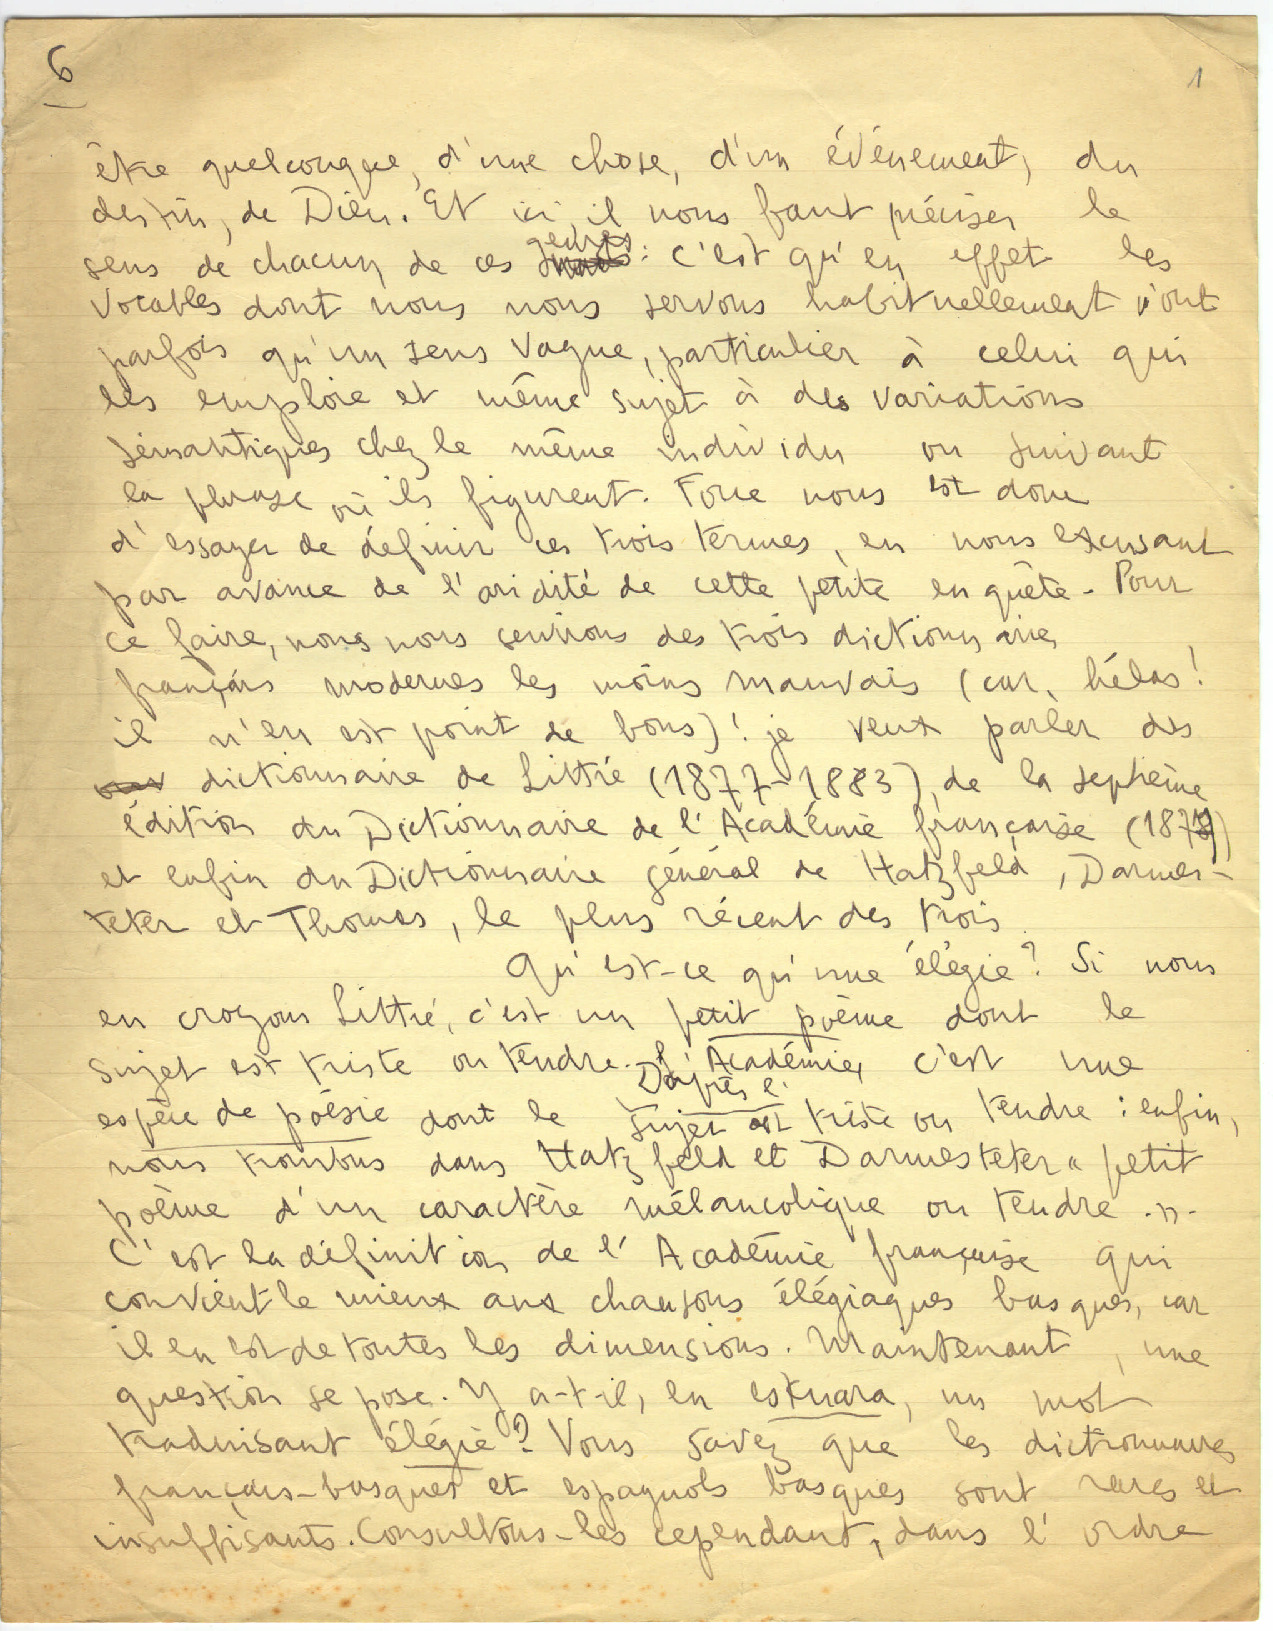 6
1
être quelconque, d'une chose, d'un événement, du
destin, de Dieu. Et ici il nous faut préciser le
genres
sens de chacun de ces : c'est qu'en effet les
vocables dont nous nous servons habituellement n'ont
parfois qu'un sens vague, particulier à celui qui
les emploie et même sujet à des variations
sémantiques chez le même individu ou suivant
la phrase où ils figurent. Force nous est donc
d'essayer de définir ces trois termes, en nous excusant
par avance de l'aridité de cette petite enquête. Pour
ce faire, nous nous servirons des trois dictionnaires
français modernes les moins mauvais (car, hélas!
il n'en est point de bons)! je veux parler des
dictionnaire de Littré (1877-1883), de la septième
édition du Dictionnaire de l'Académie française (1879)
et enfin du Dictionnaire général de Hatzfeld, Darmes-
teter et Thomas, le plus récent des trois.
Qu'est-ce qu'une élégie? Si nous
en croyons Littré, c'est un petit poème dont le
sujet est triste ou tendre. Académie, c'est une
D'après l'
espèce de poésie dont le sujet est triste ou tendre : enfin,
nous trouvons dans Hatzfeld et Darmesteter « petit
poème d'un caractère mélancolique ou tendre.».
C'est la définition de l'Académie française qui
convient le mieux aux chansons élégiaques basques, car
il en est de toutes les dimensions. Maintenant, une
question se pose. Y a-t-il, en eskuara, un mot
traduisant élégie? Vous savez que les dictionnaires
français-basques et espagnols basques sont rares et
insuffisants. Consultons-les cependant, dans l'ordre